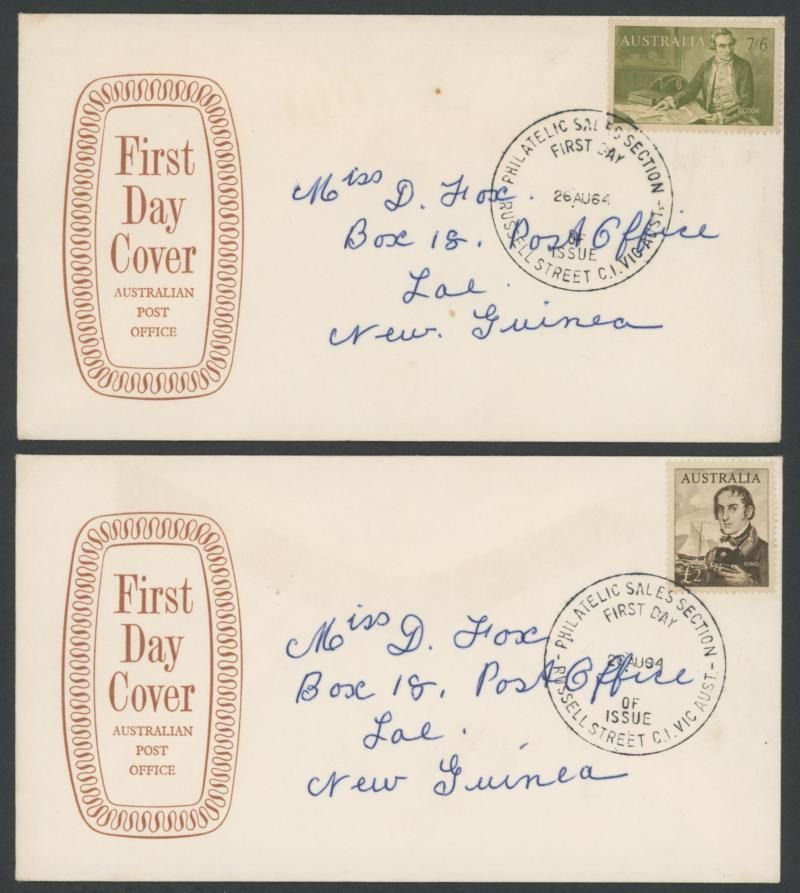 First
Day
Cover
AUSTRALIAN
POST
OFFICE
AUSTRALIA 7/6
COOK
PHILATELIC SALES SECTION
FIRST DAY
26 AU 64
OF
ISSUE
RUSSELL STREET C.I. VIC AUST.
Miss D. Fox.
Box 18. Post Office
Lae.
New. Guinea
First
Day
Cover
AUSTRALIAN
POST
OFFICE
AUSTRALIA
£2
KING
PHILATELIC SALES SECTION
FIRST DAY
26 AU 64
OF
ISSUE
RUSSELL STREET C.I. VIC AUST.
Miss D. Fox
Box 18. Post Office
Lae.
New Guinea